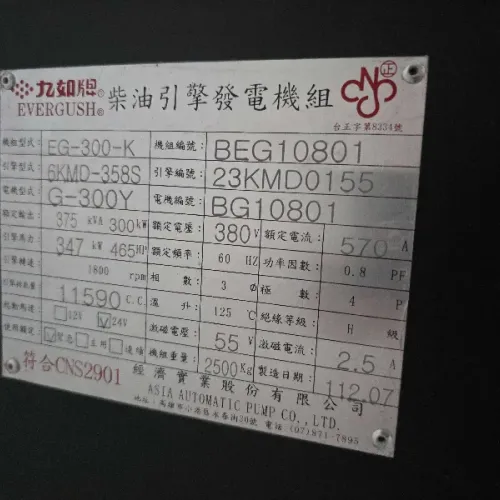 九如牌® 柴油引擎發電機組 CNS 正
EVERGUSH®
台正字第8234號
機組型式: EG-300-K 機組編號: BEG10801
引擎型式: 6KMD-358S 引擎編號: 23KMD0155
電機型式: G-300Y 電機編號: BG10801
額定輸出: 375 kVA 300kW 額定電壓: 380V 額定電流: 570 A
引擎馬力: 347 kW 465HP 額定頻率: 60 HZ 功率因數: 0.8 PF
引擎轉速: 1800 rpm 相數: 3 Ø 極數: 4 P
11590 C.C. 溫升: 125℃ 絕緣等級: H 級
起動馬達: □12V ☑24V 激磁電壓: 55 V 激磁電流: 2.5 A
使用額定: ☑緊急 □常用 □連續 機組重量: 2500Kg 製造日期: 112.07
符合CNS2901 經濟實業股份有限公司
ASIA AUTOMATIC PUMP CO., LTD.
地址: 高雄市小港區永春街20號 電話: (02)871-7895